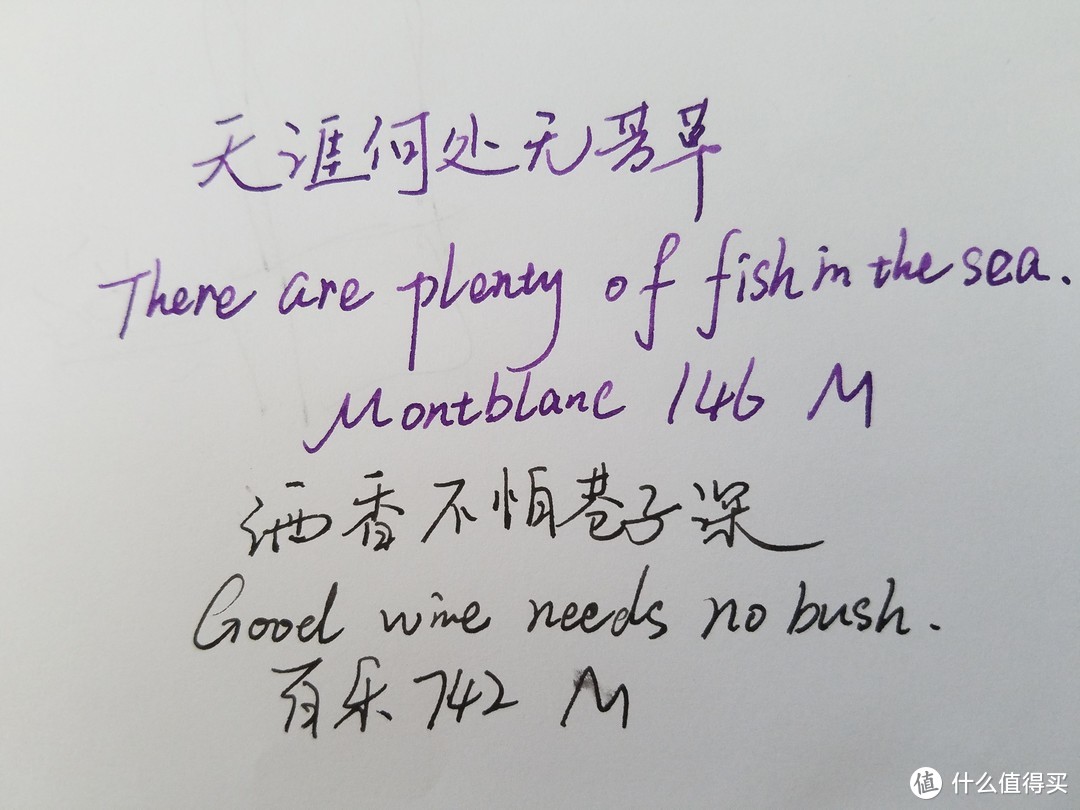 天涯何处无芳草
There are plenty of fish in the sea.
Montblanc 146 M
酒香不怕巷子深
Good wine needs no bush.
百乐 742 M
值 什么值得买